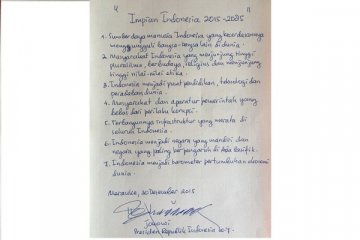 Impian Indonesia 2015-2085
1. Sumber daya manusia Indonesia yang kecerdasannya
mengungguli bangsa-bangsa lain di dunia.
2. Masyarakat Indonesia yang menjunjung tinggi
pluralisme, berbudaya, religius dan menjunjung
tinggi nilai-nilai etika.
3. Indonesia menjadi pusat pendidikan, teknologi dan
peradaban dunia.
4. Masyarakat dan aparatur pemerintah yang
bebas dari perilaku korupsi.
5. Terbangunnya infrastruktur yang merata di
seluruh Indonesia.
6. Indonesia menjadi negara yang mandiri dan
negara yang paling berpengaruh di Asia Pasifik.
7. Indonesia menjadi barometer pertumbuhan ekonomi
dunia
Merauke, 30 Desember 2015
Jokowi
Presiden Republik Indonesia ke-7.